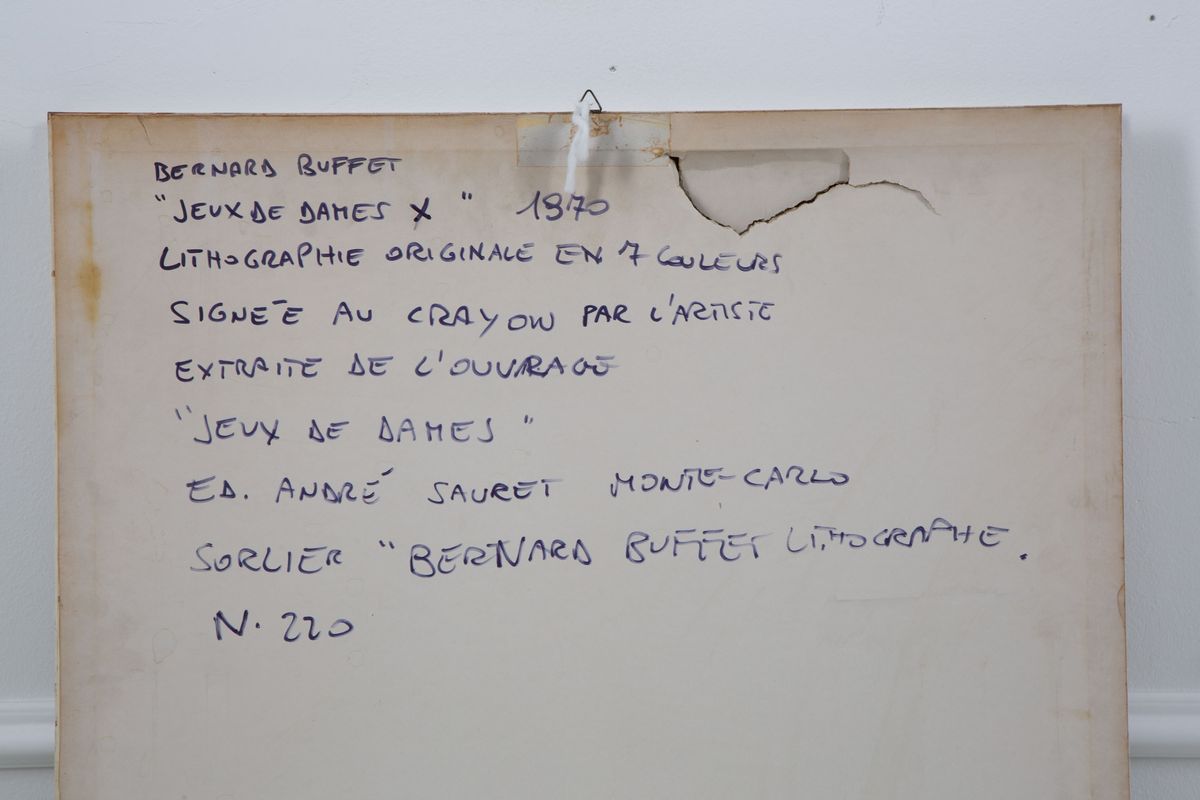 BERNARD BUFFET
"JEUX DE DAMES X" 1970
LITHOGRAPHIE ORIGINALE EN 7 COULEURS
SIGNÉE AU CRAYON PAR L'ARTISTE
EXTRAITE DE L'OUVRAGE
"JEUX DE DAMES"
ED. ANDRÉ SAURET MONTE-CARLO
SORLIER "BERNARD BUFFET LITHOGRAPHE.
N. 220